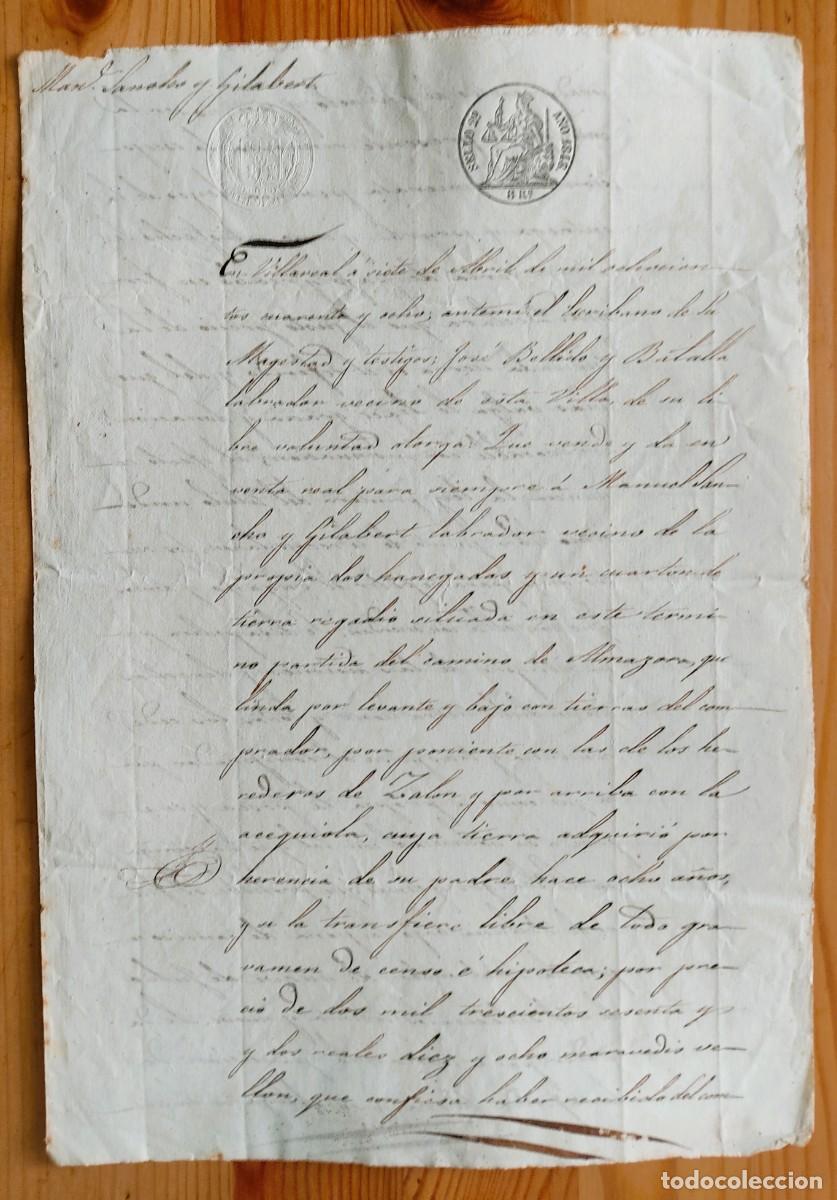 Man.l Sancho y Gilabert
SELLO 2º AÑO 1848
8 Rs
En Villareal á siete de Abril de mil ochocien-
tos cuarenta y ocho; antemi el Escribano de la
Magestad y testigos; José Bellido y Batalla
labrador vecino de esta Villa, de su li-
bre voluntad otorga: Que vende y da en
venta real para siempre á Manuel San-
cho y Gilabert labrador vecino de la
propia dos hanegadas y un cuarton de
tierra regadio situada en este termi-
no partida del camino de Almazora, que
linda por levante y bajo con tierras del com-
prador, por poniente con las de los he-
rederos de Zalon y por arriba con la
acequiola, cuya tierra adquirió por
herencia de su padre hace ocho años,
y se la transfiere libre de todo gra-
vamen de censo é hipoteca; por pre-
cio de dos mil trescientos sesenta y
y dos reales diez y ocho maravedis ve-
llon, que confiesa haber recibido del com-
todocoleccion